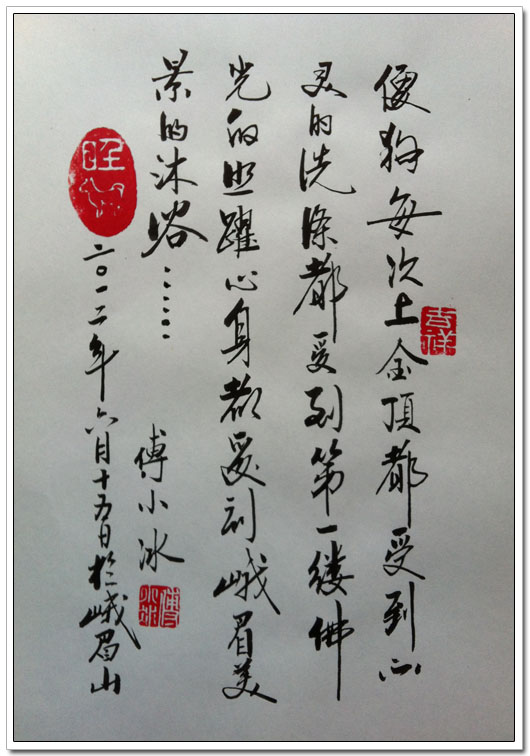 傻狗每次上金顶都受到心
灵的洗涤都受到第一缕佛
光的照躍心身都受到峨眉美
景的沐浴……
傅小冰
二〇一二年六月十五日於峨眉山
吉祥
旺
傅小冰